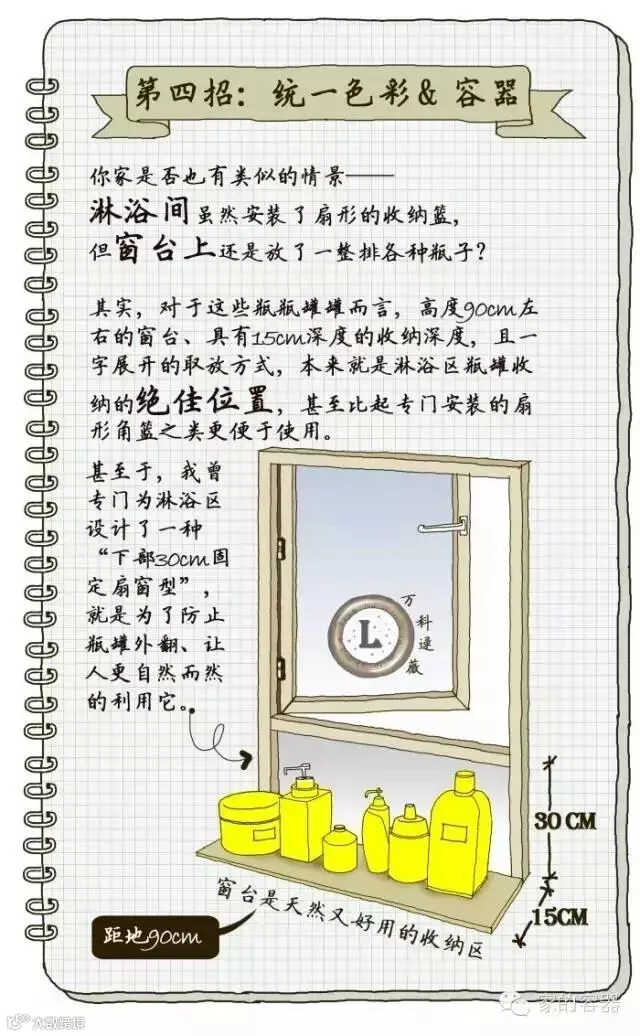 第四招：统一色彩& 容器
你家是否也有类似的情景——
淋浴间虽然安装了扇形的收纳篮，
但窗台上还是放了一整排各种瓶子？
其实，对于这些瓶瓶罐罐而言，高度90cm左
右的窗台、具有15cm深度的收纳深度，且一
字展开的取放方式，本来就是淋浴区瓶罐收
纳的绝佳位置，甚至比起专门安装的扇
形角篮之类更便于使用。
甚至于，我曾
专门为淋浴区
设计了一种
“下部30cm固
定扇窗型”，
就是为了防止
瓶罐外翻、让
人更自然而然
的利用它。
L
万科逯薇
30 CM
15CM
窗台是天然又好用的收纳区
距地90cm
家的容器
大数跨境